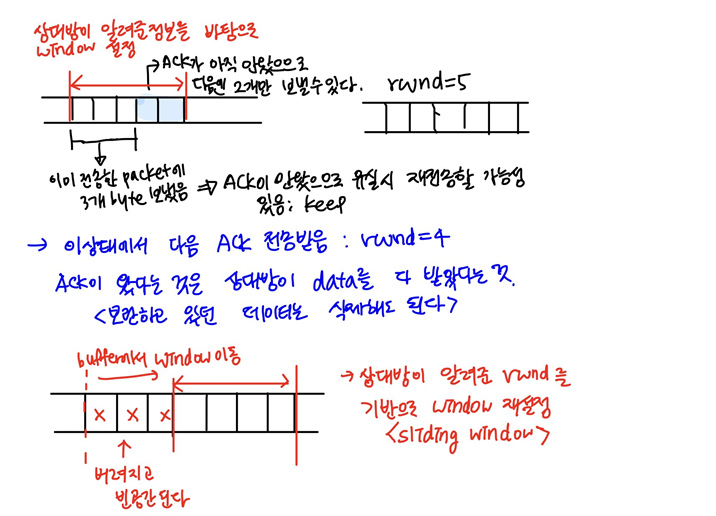 상대방이 알려준정보를 바탕으로
window 설정
→ACK가 아직 안왔으므로
다음엔 2개만 보낼수 있다.
rwnd=5
이미 전송한 packet에
3개 byte 보냈음 ⇒ ACK이 안왔으므로 유실시 재전송할 가능성
있음; keep
→ 이상태에서 다음 ACK 전송받음 : rwnd=4
ACK이 왔다는 것은 상대방이 data를 다 받았다는 것.
<보관하고 있던 데이터는 삭제해도 된다>
buffer에서 window 이동
→ 상대방이 알려준 rwnd를
기반으로 window 재설정
<sliding window>
x x x
버려지고
빈공간된다